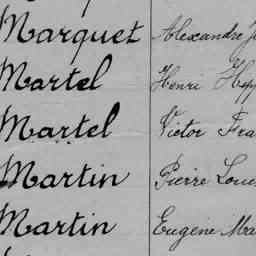 Marquet Alexandre
Martel Henri
Martel Victor
Martin Pierre
Martin Eugène